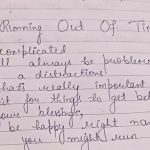 Running Out Of Ti
complicated
ll always be problem
a distractions
hat's really important
it for things to get bet
your blessings,
be happy right now
you might run